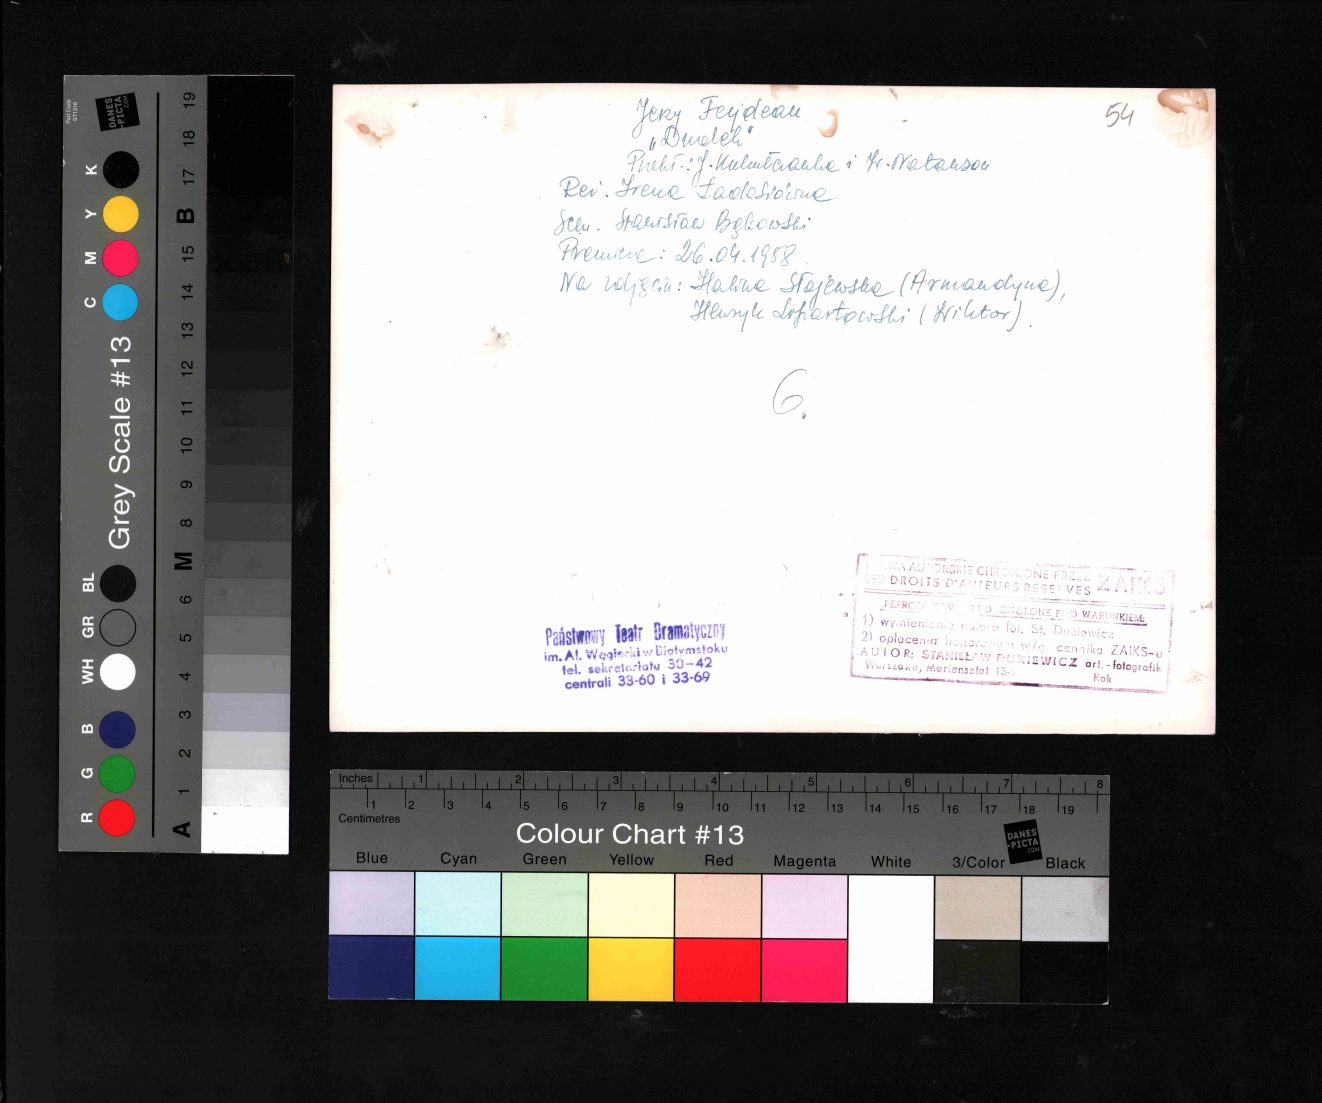 Jerzy Feydeau
54
„Dudek"
Przekł.: J. i W. Natanson
Reż. Irena Ładosiówna
Scen. Stanisław Bąkowski
Premiera: 26.04.1958
Na zdjęciu: Halina Słojewska (Armandyna),
Henryk Łopartowski (Wiktor).
6.
PRAWA AUTORSKIE CHRONIONE PRZEZ ZAIKS
LES DROITS D'AUTEURS RESERVES
REPRODUKOWANIE DOZWOLONE POD WARUNKIEM:
1) wymienienia autora fot. St. Dukiewicz
2) opłacenia honorarium w/g. cennika ZAIKS-u
AUTOR: STANISŁAW DUKIEWICZ art.-fotografik
Warszawa, Mariensztat 13-
Rok
Państwowy Teatr Dramatyczny
im. Al. Węgierki w Białymstoku
tel. sekretariatu 30-42
centrali 33-60 i 33-69
Part Code
ST1316
DANES
-PICTA
.COM
Grey Scale #13
R G B WH GR BL C M Y K
A 1 2 3 4 5 6 M 8 9 10 11 12 13 14 15 B 17 18 19
Inches 1 2 3 4 5 6 7 8
1 2 3 4 5 6 7 8 9 10 11 12 13 14 15 16 17 18 19
Centimetres
Colour Chart #13
DANES
-PICTA
.COM
Blue Cyan Green Yellow Red Magenta White 3/Color Black